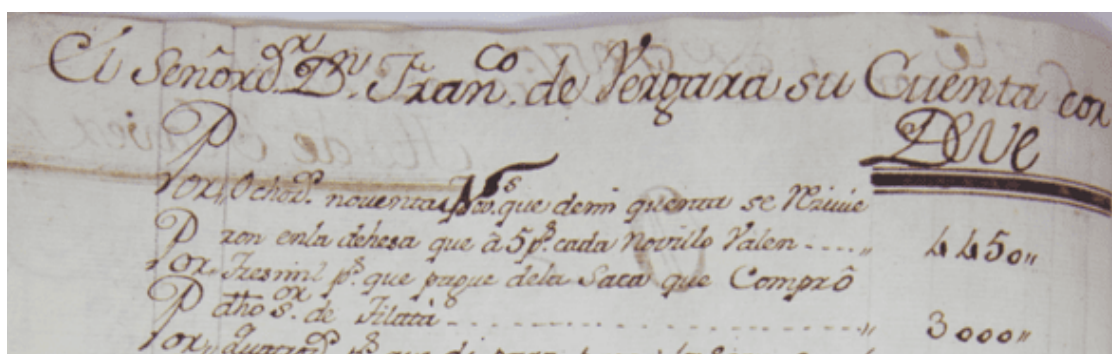 El Señor Dn. Franco. de Vergara su Cuenta con
DeVe
Por Ochos. noventa Nos. que demi quenta se Reciuie
ron enla dehesa que â 5 ps. cada Novillo Valen ---- 4450
Por Tresmil ps. que pague dela Saca que Comprô
dho Sor. de Tilatà ---- 3000
Por quatros. ps. que di para